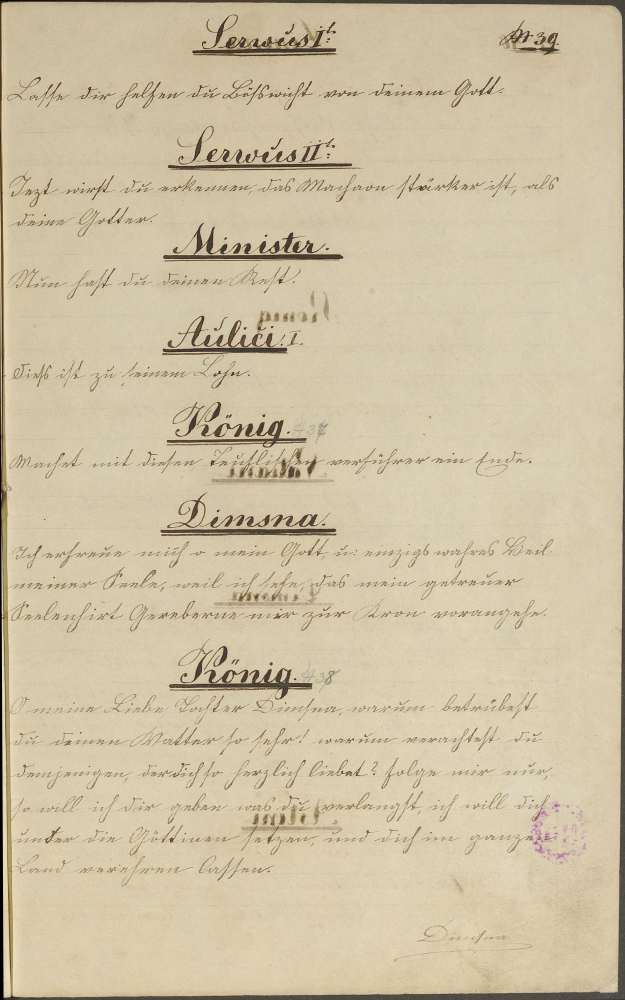 Serwus I<sup>t:</sup>
N 39
Lasse dir helfen du Bößwicht von deinem Gott.
Serwus II<sup>t:</sup>
Jezt wirst du erkennen, das Machaon stärker ist, als
deine Gotter.
Minister.
Nun hast du deinen Rest.
Aulici. I.
Dieß ist zu seinem Lohn.
König. # 37
Machet mit diesen Teuflischen verführer ein Ende.
Dimsna.
Ich erfreue mich o mein Gott, u: einzigs wahres Heil
meiner Seele, weil ich sehe, das mein getreuer
Seelenhirt Gereberne mir zur Kron vorangehe.
König. # 38
O meine Liebe Tochter Dimsna, warum betrübest
du deinen Vatter so sehr! warum verachtest du
demjenigen, der dich so herzlich liebet? folge mir nur,
so will ich dir geben was du verlangst, ich will dich
unter die Göttinen setzen, und dich im ganzen
Land verehren lassen.
Dimsna